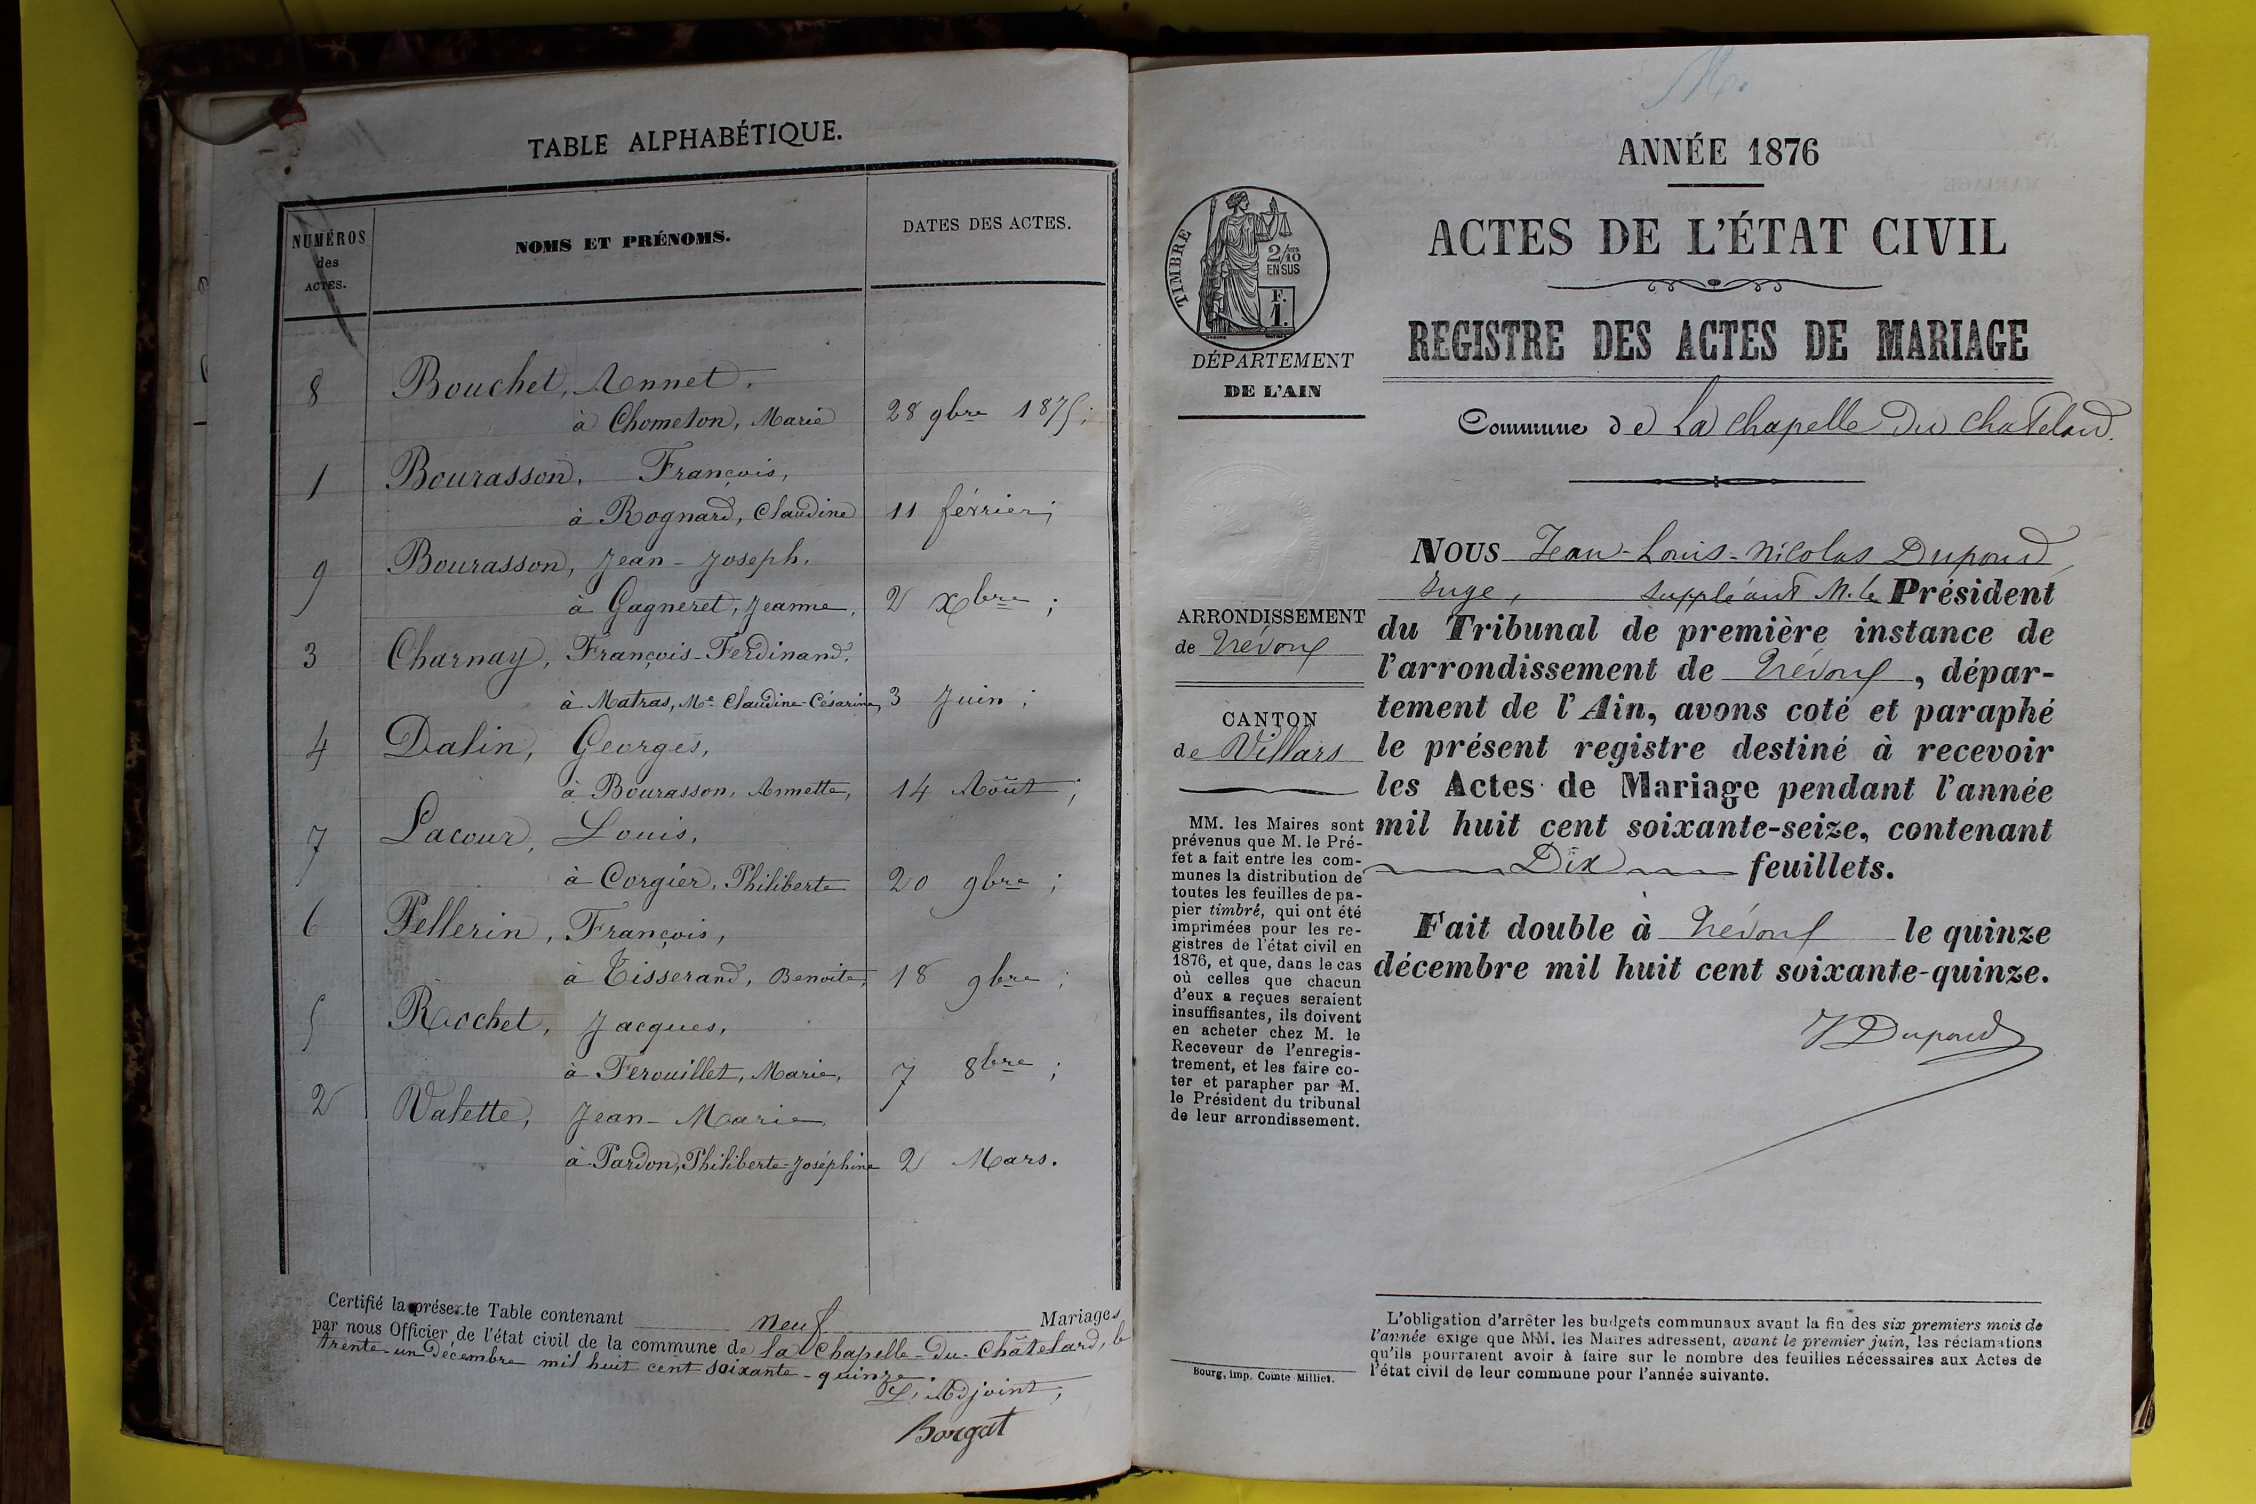 TABLE ALPHABÉTIQUE.
NUMÉROS des ACTES.
NOMS ET PRÉNOMS.
DATES DES ACTES.
8 Bouchet, Annet.
à Chometon, Marie 28 9bre 1875;
1 Bourasson, François,
à Rognard, Claudine 11 février;
9 Bourasson, Jean-Joseph.
à Gagneret, Jeanne, 2 Xbre;
3 Charnay, François-Ferdinand,
à Matras, Me Claudine-Césarine, 3 Juin;
4 Dalin, Georges,
à Bourasson, Annette, 14 Août;
7 Lacour, Louis,
à Corgier, Philiberte 20 9bre;
6 Pellerin, François,
à Tisserand, Benoite, 18 9bre;
5 Rochet, Jacques,
à Férouillet, Marie, 7 8bre;
2 Valette, Jean-Marie
à Pardon, Philiberte-Joséphine 2 Mars.
Certifié la présente Table contenant neuf Mariages
par nous Officier de l'état civil de la commune de la Chapelle-du-Châtelard, le
trente-un Décembre mil huit cent soixante-quinze.
L'Adjoint,
Borgat
M.
ANNÉE 1876
ACTES DE L'ÉTAT CIVIL
REGISTRE DES ACTES DE MARIAGE
TIMBRE
2/10
EN SUS
F.
1.
DÉPARTEMENT
DE L'AIN
Commune de La Chapelle du Chatelard.
ARRONDISSEMENT
de Trévoux
CANTON
de Villars
MM. les Maires sont
prévenus que M. le Pré-
fet a fait entre les com-
munes la distribution de
toutes les feuilles de pa-
pier timbré, qui ont été
imprimées pour les re-
gistres de l'état civil en
1876, et que, dans le cas
où celles que chacun
d'eux a reçues seraient
insuffisantes, ils doivent
en acheter chez M. le
Receveur de l'enregis-
trement, et les faire co-
ter et parapher par M.
le Président du tribunal
de leur arrondissement.
Bourg, imp. Comte-Milliet.
NOUS Jean-Louis-Nicolas Dupond
Juge, suppléant M. le Président
du Tribunal de première instance de
l'arrondissement de Trévoux, dépar-
tement de l'Ain, avons coté et paraphé
le présent registre destiné à recevoir
les Actes de Mariage pendant l'année
mil huit cent soixante-seize, contenant
Dix feuillets.
Fait double à Trévoux le quinze
décembre mil huit cent soixante-quinze.
Dupond
L'obligation d'arrêter les budgets communaux avant la fin des six premiers mois de
l'année exige que MM. les Maires adressent, avant le premier juin, les réclamations
qu'ils pourraient avoir à faire sur le nombre des feuilles nécessaires aux Actes de
l'état civil de leur commune pour l'année suivante.